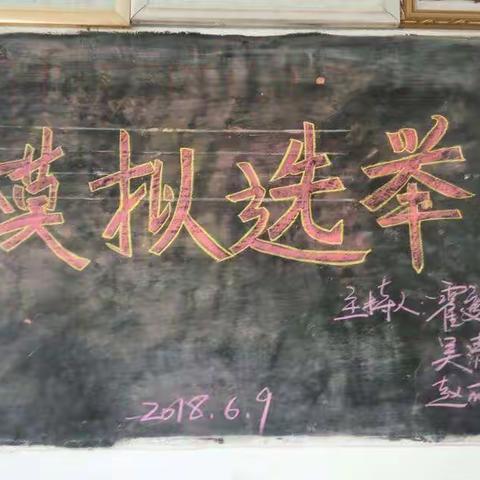 模拟选举
主持人:霍
吴
赵丽
2018.6.9